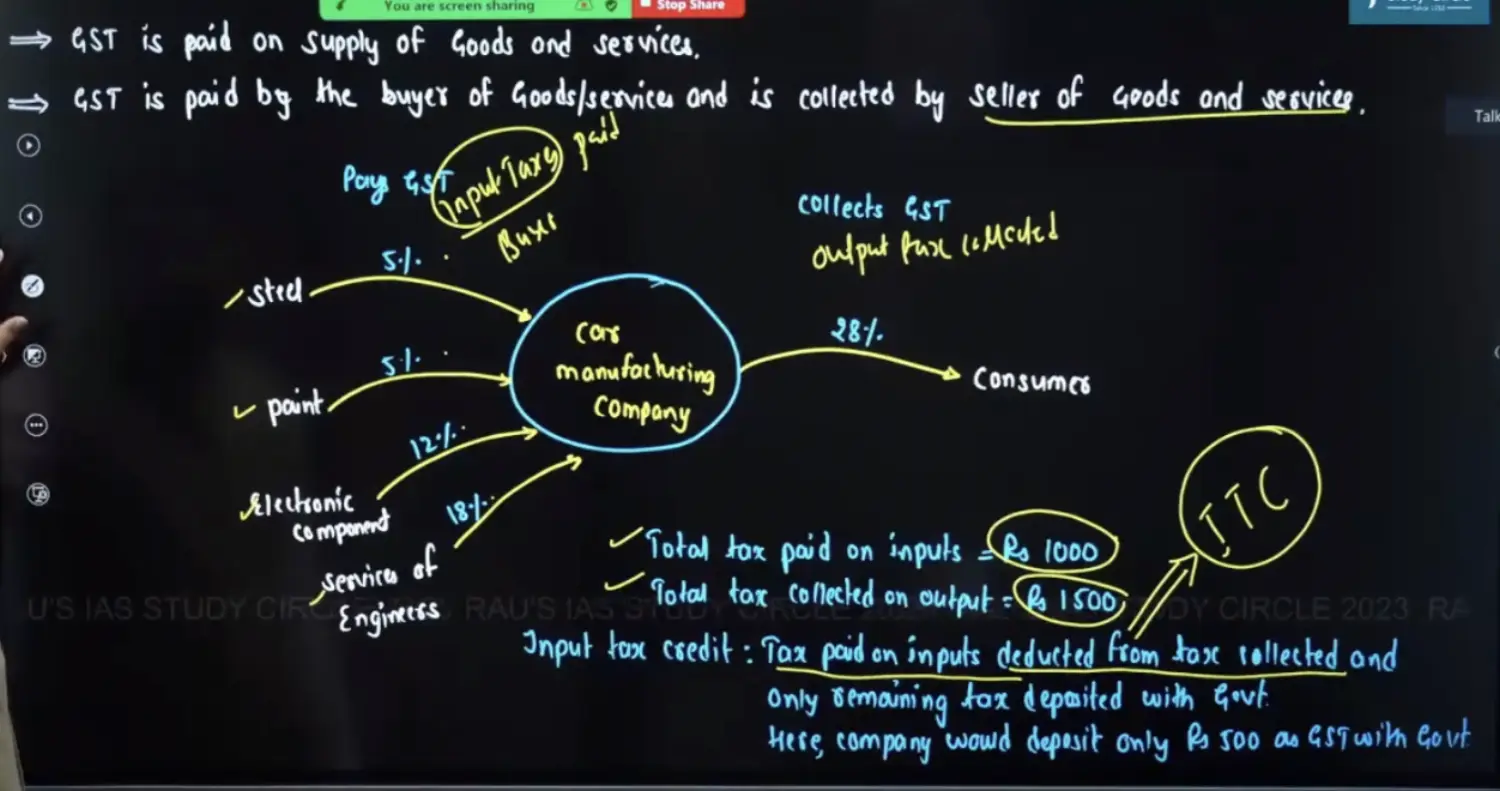 You are screen sharing
Stop Share
⇒ GST is paid on supply of Goods and services.
⇒ GST is paid by the buyer of Goods/services and is collected by seller of Goods and services.
Talk
Pays GST
Input Taxes paid
Buyer
collects GST
output tax collected
5%
steel
5%
paint
12%
Electronic
component
18%
services of
Engineers
Car
manufacturing
company
28%
Consumer
ITC
Total tax paid on inputs = Rs 1000
Total tax collected on output = Rs 1500
U'S IAS STUDY CIRCLE RAU'S IAS STUDY CIRCLE 2023 RA
Input tax credit : Tax paid on inputs deducted from tax collected and
only remaining tax deposited with Govt.
Here, company would deposit only Rs 500 as GST with Govt